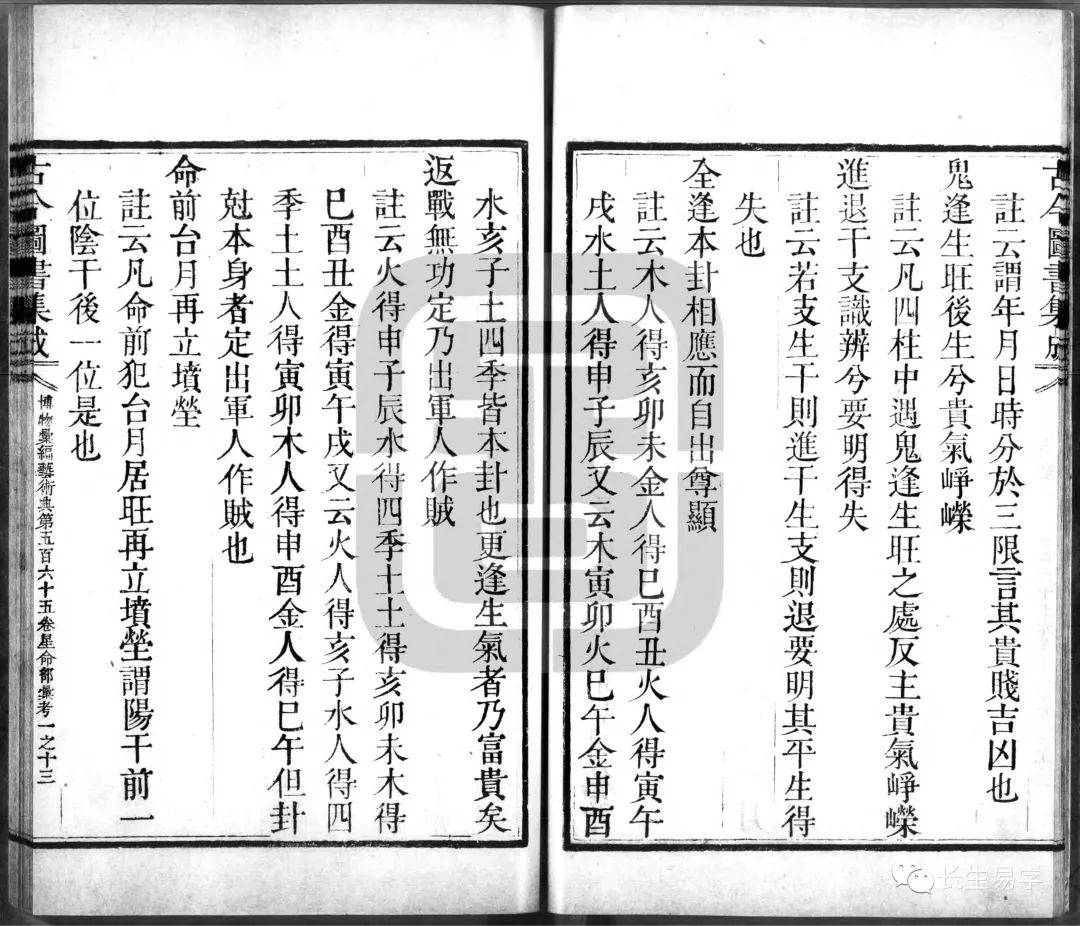 古今圖書集成
註云謂年月日時分於三限言其貴賤吉凶也
鬼逢生旺後生兮貴氣崢嶸
註云凡四柱中遇鬼逢生旺之處反主貴氣崢嶸
進退干支識辨兮要明得失
註云若支生干則進干生支則退要明其平生得
失也
全逢本卦相應而自出尊顯
註云木人得亥卯未金人得巳酉丑火人得寅午
戌水土人得申子辰又云木寅卯火巳午金申酉
水亥子土四季皆本卦也更逢生氣者乃富貴矣
返戰無功定乃出軍人作賊
註云火得申子辰水得四季土土得亥卯未木得
巳酉丑金得寅午戌又云火人得亥子水人得四
季土土人得寅卯木人得申酉金人得巳午但卦
尅本身者定出軍人作賊也
命前台月再立墳塋
註云凡命前犯台月居旺再立墳塋謂陽干前一
位陰干後一位是也
古今圖書集成
博物彙編藝術典第五百六十五卷星命部彙考一之十三
长生易学